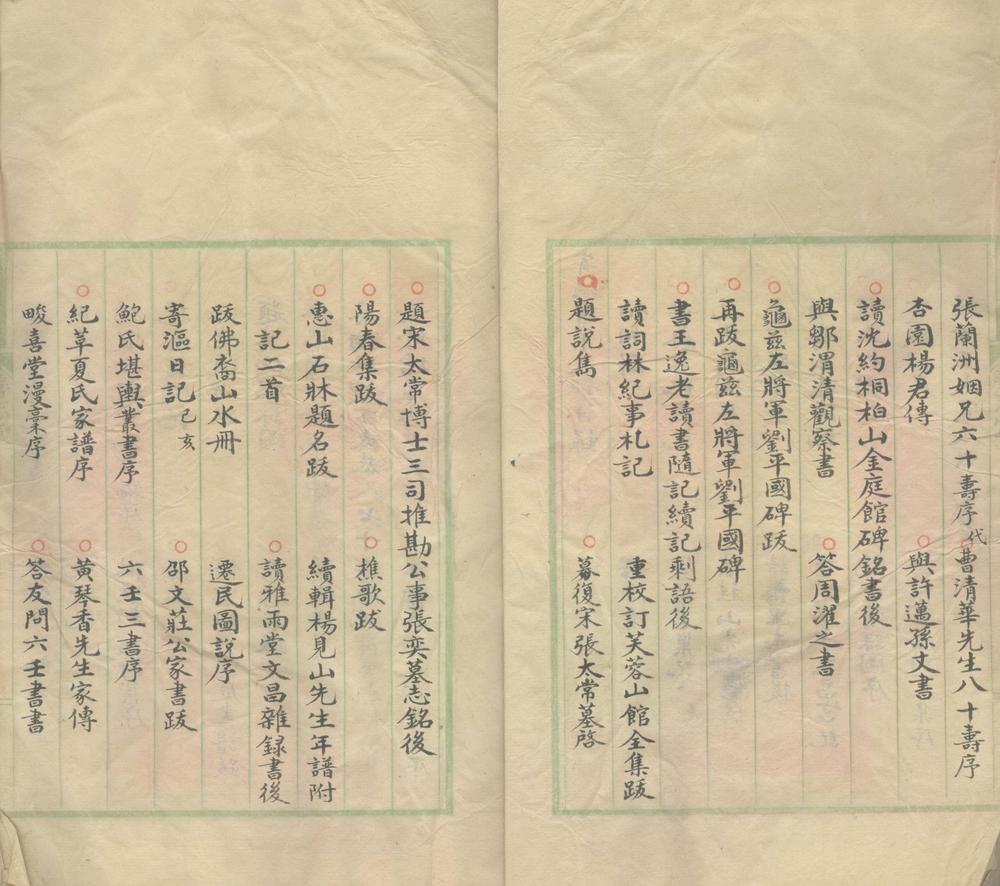 張蘭洲姻兄六十壽序代　曹清華先生八十壽序
杏園楊君傳　與許邁孫丈書
讀沈約桐柏山金庭館碑銘書後
與鄒渭清觀察書　答周濯之書
龜茲左將軍劉平國碑跋
再跋龜茲左將軍劉平國碑
書王逸老讀書隨記續記剩語後
讀詞林紀事札記　重校訂芙蓉山館全集跋
題說雋　募復宋張太常墓啓
題宋太常博士三司推勘公事張奕墓志銘後
陽春集跋　樵歌跋
惠山石牀題名跋　續輯楊見山先生年譜附
記二首　讀雅雨堂文昌雜録書後
跋佛裔山水冊　遷民圖説序
寄漚日記己亥　邵文莊公家書跋
鮑氏堪輿叢書序　六壬三書序
紀草夏氏家譜序　黄琴香先生家傳
畯喜堂漫稾序　答友問六壬書書